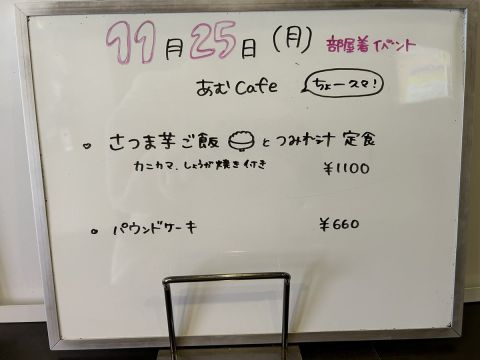 11月25日(月) 部屋着イベント
あむCafe ちょースマ!
さつま芋ご飯とつみれ汁 定食
カニカマ、しょうが焼き付き ¥1100
パウンドケーキ ¥660